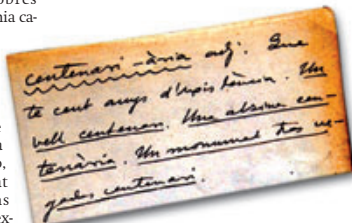 obres
nia ca-
centenari -ària adj. Que
te cent anys d'existència. Un
vell centenari. Una alzina cen-
tenària. Un monument tres ve-
gades centenari.
e
a
o,
at
as
ex-